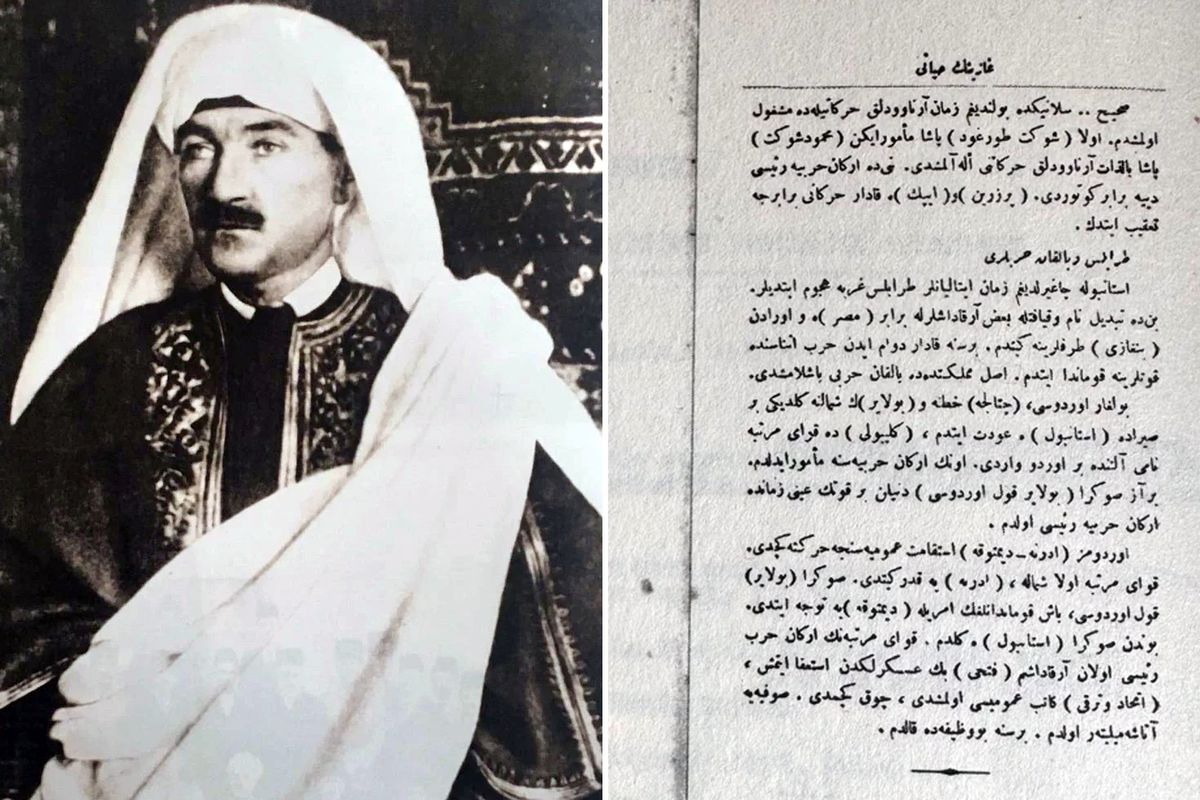 غازینك حیاتی
صحیح .. سلانیكده بولندیغم زمان آرناوودلق حركاتیله‌ده مشغول
اولمشدم. اولا ( شوكت طورغود ) پاشا مأمورایكن ( محمودشوكت )
پاشا بالذات آرناوودلق حركاتی أله آلمشدی. بنی‌ده اركان حربیه رئیسی
دییه برابر كوتوردی. ( پرزرین )و( ایپك )ه قادار حركاتی برابرجه
تعقیب ایتدك .
طرابلس وبالقان حربلری
استانبوله چاغیرلدیغم زمان ایتالیانلر طرابلس غربه هجوم ایتدیلر.
بن‌ده تبدیل نام وقیافتله بعض آرقاداشلرله برابر ( مصر )ه و اورادن
( بنغازی ) طرفلرینه كیتدم . برسنه قادار دوام ایدن حرب اثناسنده
قوتلرینه قوماندا ایتدم . اصل مملكتده‌ده بالقان حربی باشلامشدی.
بولغار اوردوسی، (چتالجه) خطنه و(بولایر )ك شمالنه كلدیكی بر
صیراده ( استانبول )ه عودت ایتدم ، ( كلیبولی ) ده قوای مرتبه
نامی آلتنده بر اوردو واردی. اونك اركان حربیه‌سنه مأمورایدلدم.
برآز صوكرا ( بولایر قول اوردوسی ) دنیلن بر قوتك عینی زمانده
اركان حربیه رئیسی اولدم .
اوردومز ( ادرنه ـ دیمتوقه ) استقامت عمومیه‌سنجه حركته كچدی.
قوای مرتبه اولا شماله ، ( ادرنه ) یه قدر كیتدی. صوكرا (بولایر)
قول اوردوسی، باش قوماندانلغك امریله ( دیمتوقه )یه توجه ایتدی.
بوندن صوكرا ( استانبول )ه كلدم . قوای مرتبه‌نك اركان حرب
رئیسی اولان آرقاداشم ( فتحی ) بك عسكرلكدن استعفا ایتمش ،
( اتحاد وترقی ) كاتب عمومیسی اولمشدی ، چوق كچمدی . صوفیه‌یه
آتاشه‌میلیتر اولدم . برسنه بووظیفه‌ده قالدم .